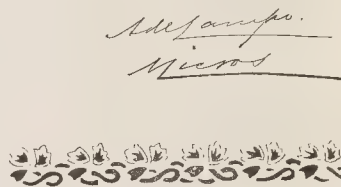 A de Campo.
Micros